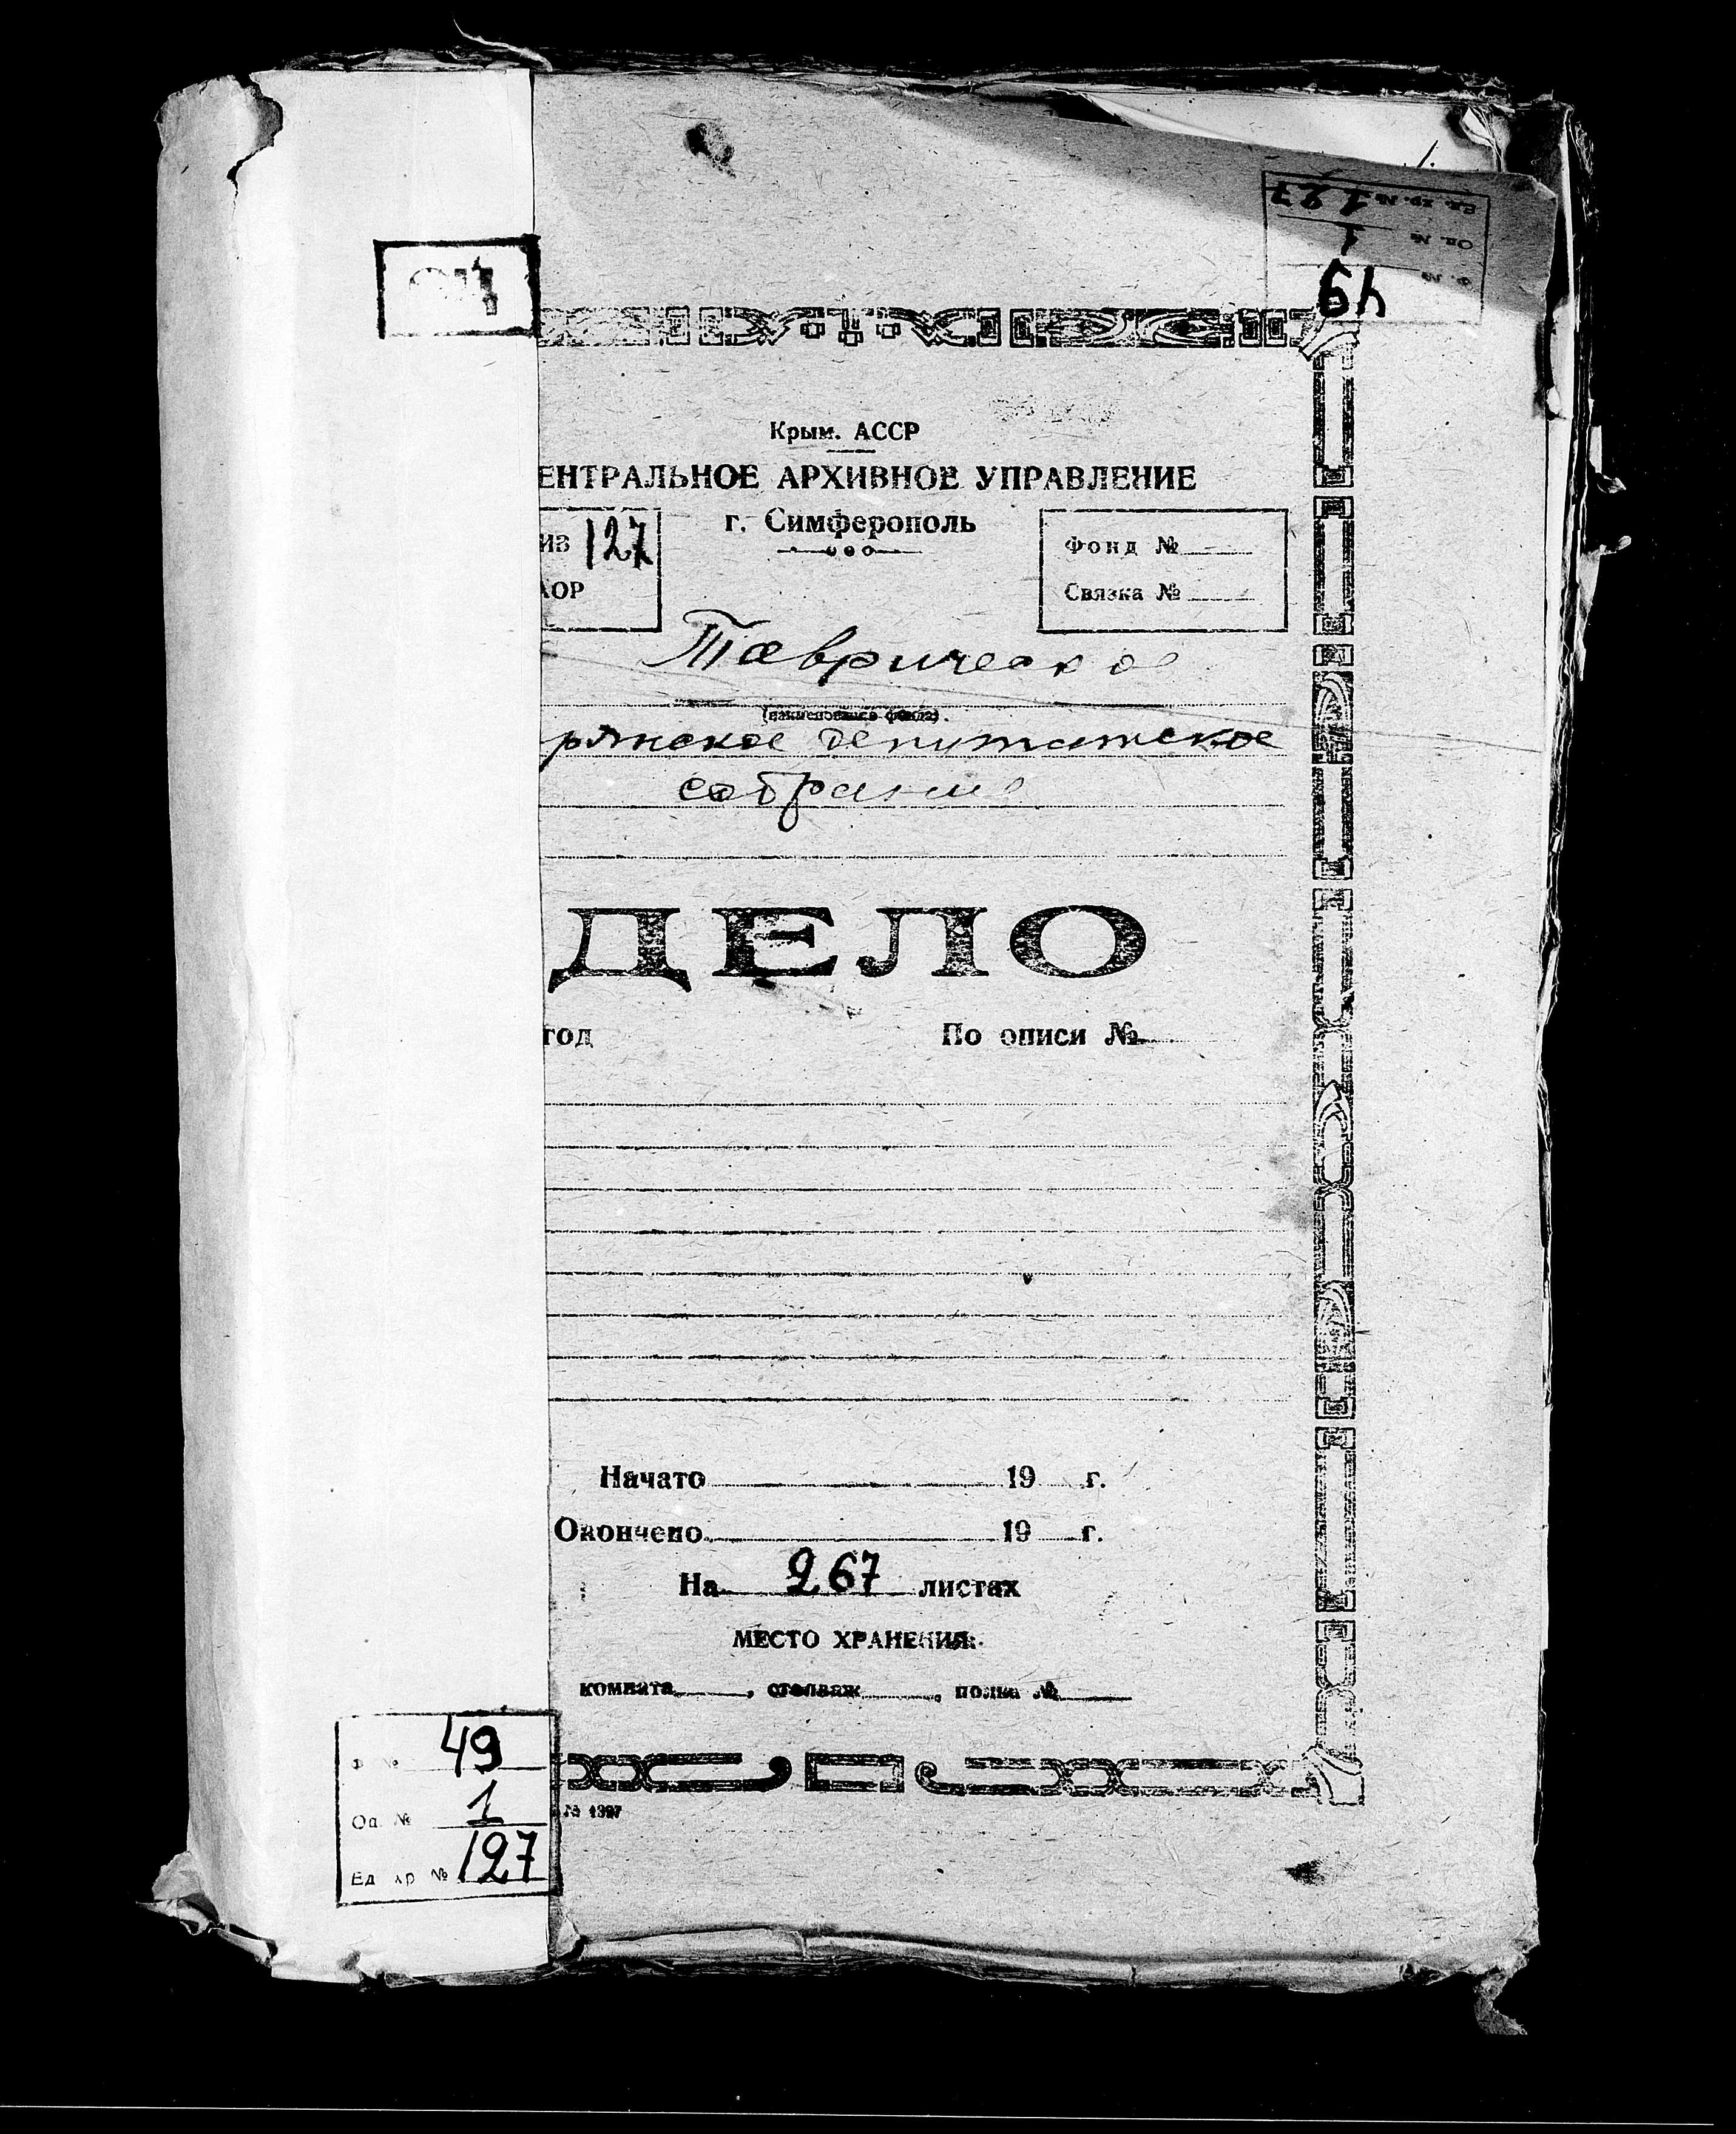 ОЦ
Ед. хр. № 127
Оп. № 1
Ф. № 49
Крым. АССР
ЕНТРАЛЬНОЕ АРХИВНОЕ УПРАВЛЕНИЕ
г. Симферополь
ИЗ 127
АОР
Фонд №
Связка №
Таврическое
(наименование фонда).
рянское депутатское
собрание
ДЕЛО
год
По описи №
Начато 19 г.
Окончено 19 г.
На 267 листах
МЕСТО ХРАНЕНИЯ:
комната , стеллаж , полка №
Ф № 49
Оп. № 1
Ед хр № 127
№ 1397